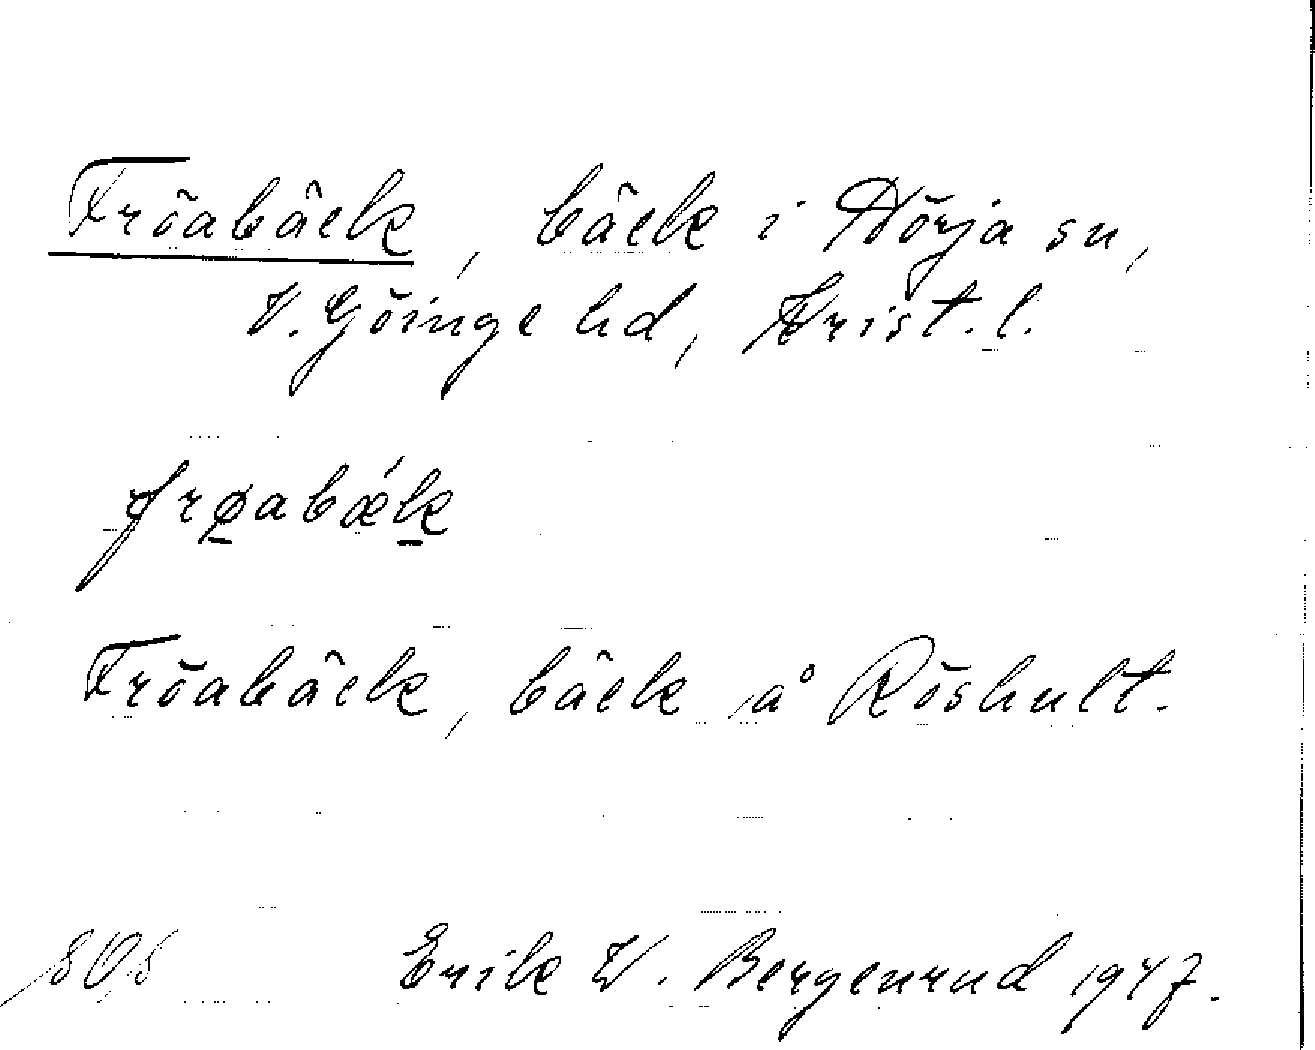 Fröabäck, bäck i Nörja sn,
V. Göinge hd, Krist. l.
frøabæ´k
Fröabäck, bäck å Röshult.
Erik W. Bergenrud 1947.